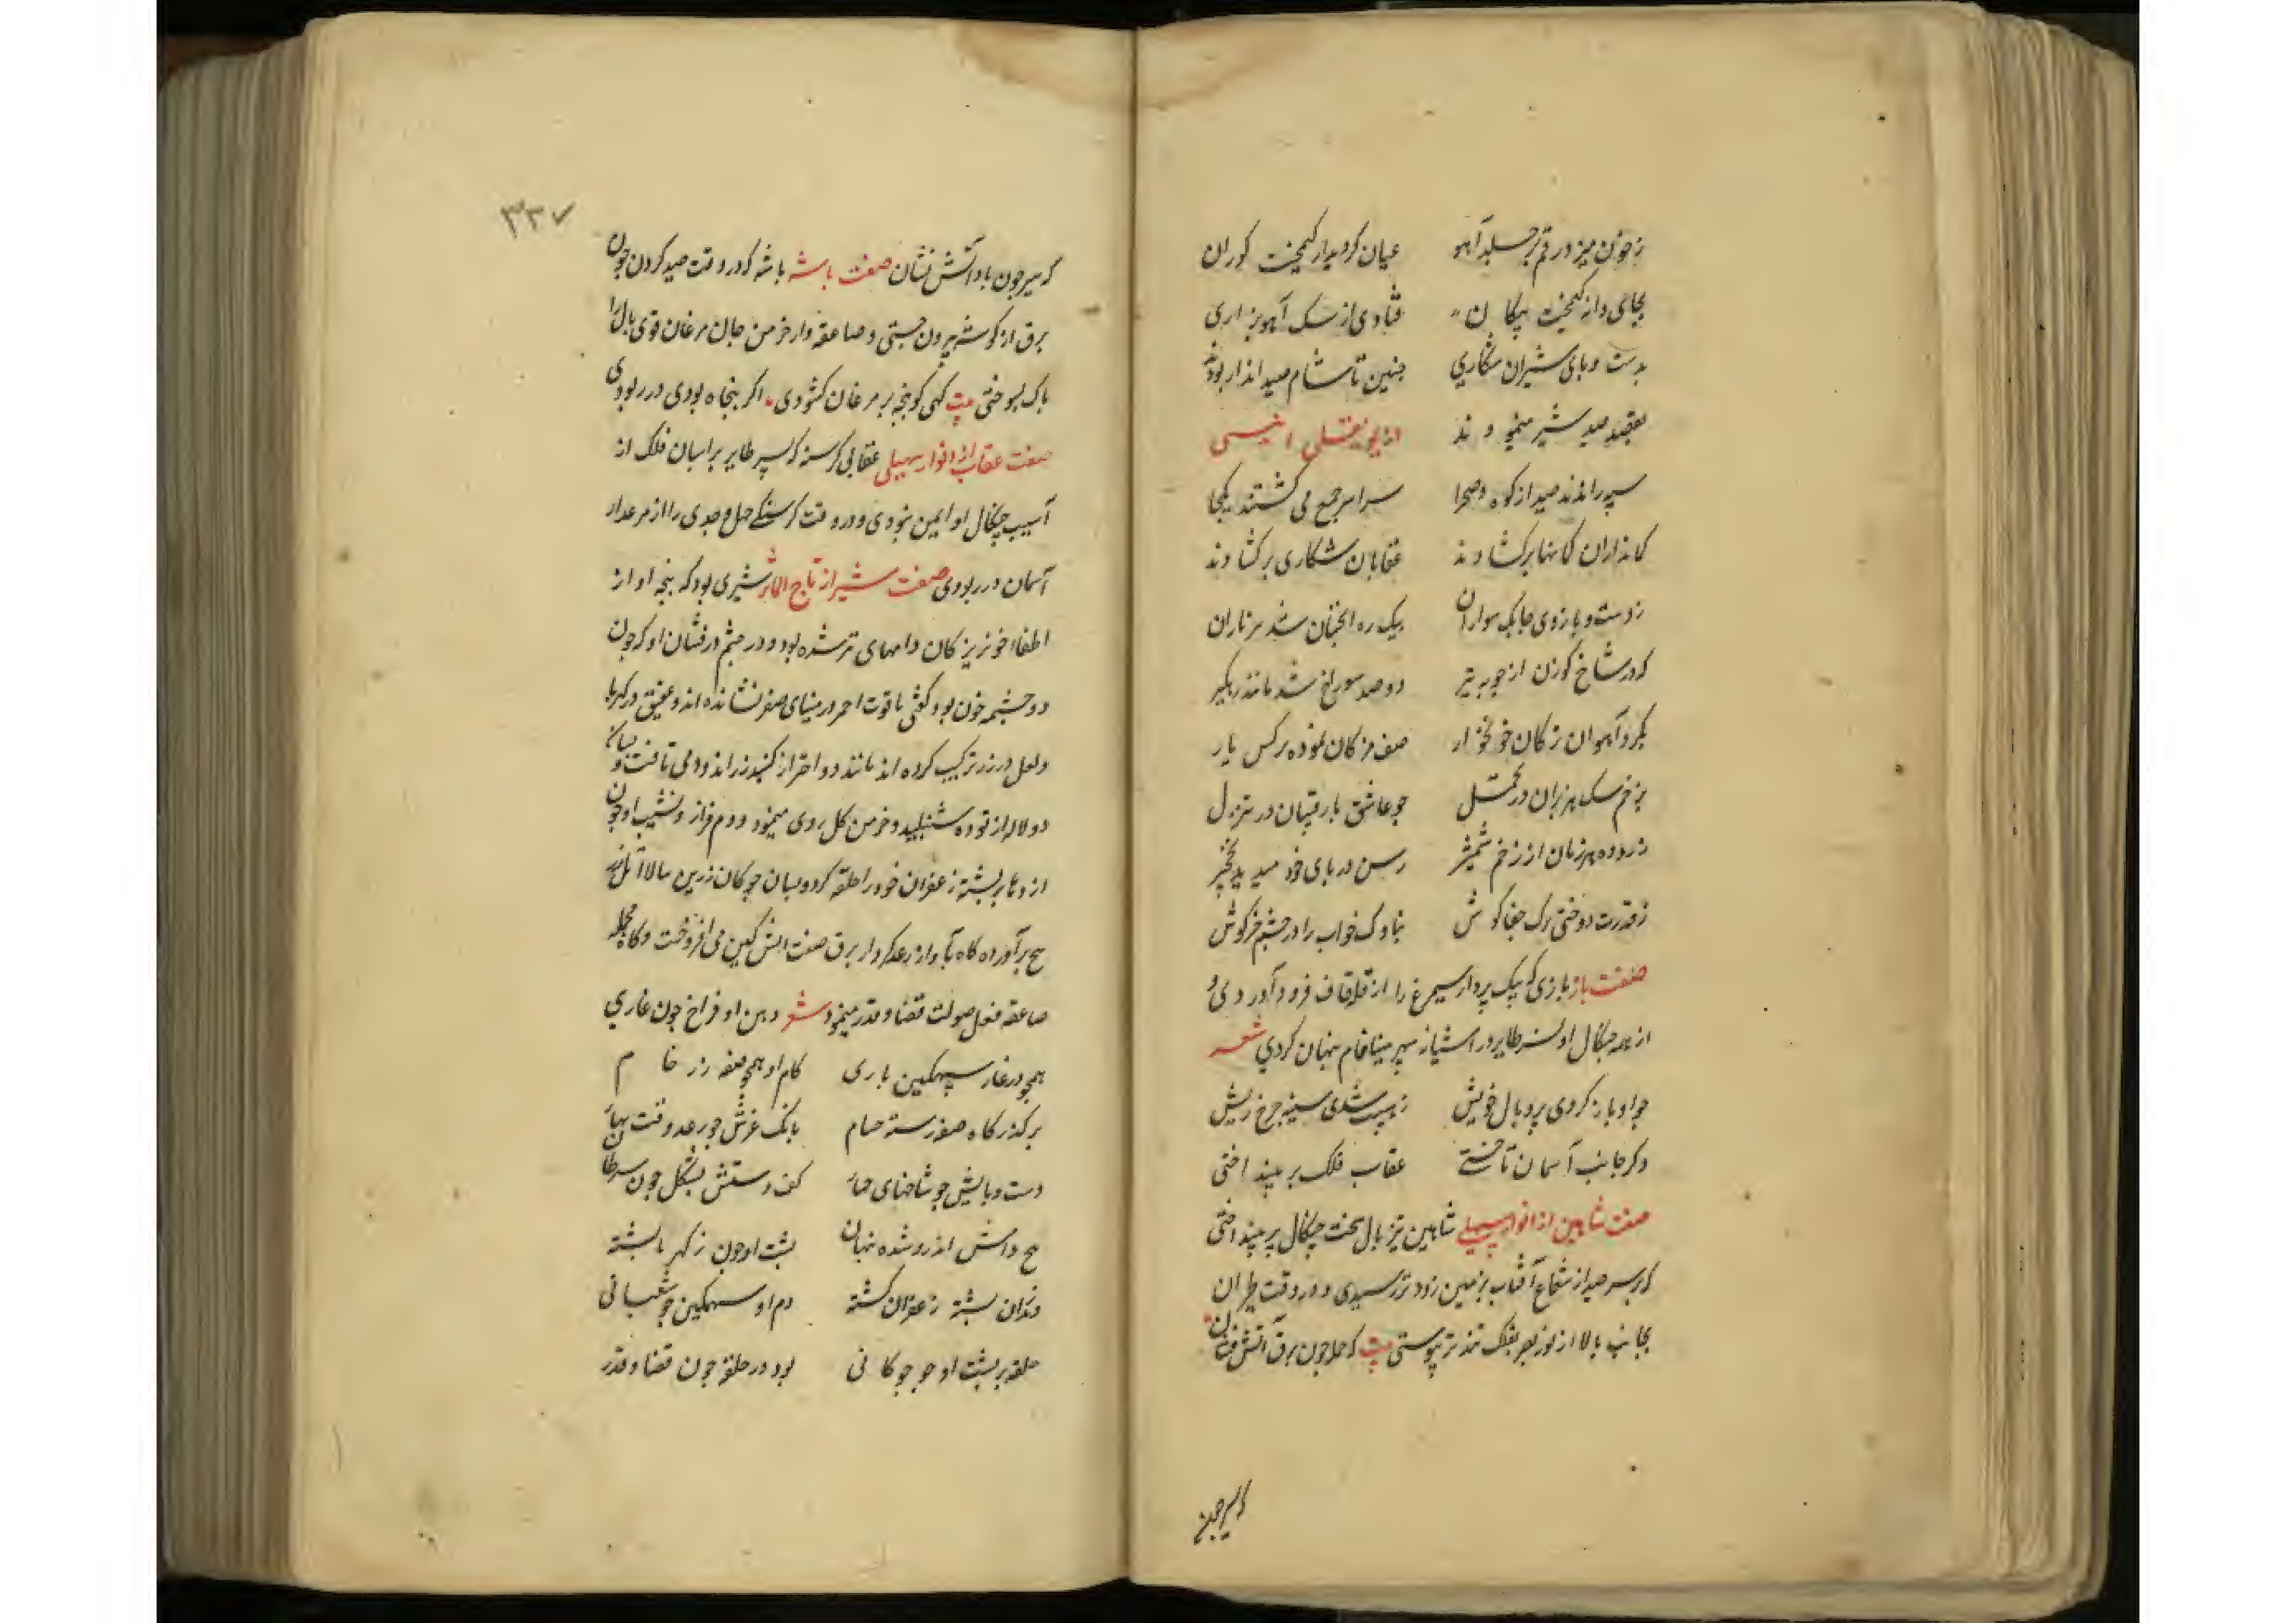 ز خون میزد رقم بر جلد آهو عیان کردید از کیمخت کوران
بجای دانه کیمخت پیکان فتادی از سک آهو بزاری
بدست و پای شیران شکاری چنین تا شام صید انداز بودند
بقصد صید شیر مینمودند از یوسفی
سپه راندند صید از کوه و صحرا سراسر جمع می کشتند یکجا
کمانداران کمانها برکشادند عقابان شکاری برکشادند
ز دست و بازوی چابک سواران بیک ره آنچنان شد تیرباران
که در شاخ کوزن از چوبه تیر دو صد سوراخ شد مانند
بکرد آهوان ز کان خونخوار صف مژکان نموده نرکس یار
بزخم سک هزبران در تحمل چو عاشق با رقیبان در تنزل
ز روده هر زمان از زخم شمشیر رسن در پای خود میدید نخجیر
ز قدرت دوختی ترک جفاکوش بناوک خواب را در چشم خرکوش
صفت باز بازی که بیک پرواز سیمرغ را از قله قاف فرود آوردی و
از همه چنکال او نسر طایر در آشیانه سپهر مینافام پنهان کردی شعر
چو او باز کردی پر و بال خویش ز هیبت شدی سینه چرخ ریش
وکر جانب آسمان تاختی عقاب فلک پر بینداختی
صفت شاهین از انوار سهیلی شاهین تیز بال سخت چنکال پر بینداختی
که بر سر صید از شعاع آفتاب بزمین زودتر رسیدی و در وقت طیران
بجانب بالا از نور بصر بفلک تندتر پیوستی بیت که حمله چون برق آتش فشان
که سیر چون
۳۳۷
که سیر چون باد آتش نشان صفت باشه باشه که در وقت صید کردن چون
برق از کوشه بیرون جستی و صاعقه وار خرمن جان مرغان قوی بال را
پاک بسوختی بیت کهی کو پنجه بر مرغان کشودی اکر پنجاه بودی در ربودی
صفت عقاب از انوار سهیلی عقابی کرسنه که نسر طایر بر آسمان فلک از
آسیب چنکال او ایمن نبودی و در وقت کرسنکی حمل و جدی را از مرغزار
آسمان در ربودی صفت شیر از تاج المآثر شیری بود که پنجه او از
اطفاء خونریز کان دامهای تر شده بود و در چشم درفشان او که چون
دو چشمه خون بود کوئی یاقوت احمر در مینای صفر نشانده اند و عقیق در کهربا
و لعل در زر ترکیب کرده اند مانند دو اختر از کنبد زراندود می تافت و بسان
دو لاله از توده شنبلید و خرمن کل روی مینمود و دم فراز و نشیب او چون
اژدها بر پشته زعفران خود را حلقه کرده و بسان چوکان زرین
برآورده کاه بآواز رعد کردار برق صفت آتش کین می افروخت و کاه بحمله
صاعقه فعل صولت قضا و قدر مینمود شعر دهن او فراخ چون غاری
همچو در غار سهمکین باری کام او همچو صفه زر خام
برکذرکاه صفه رسته حسام بانک غرش چو رعد وقت بهار
دست و پایش چو شاخهای چنار کف دستش بشکل چون سرطان
اندرو شده پنهان پشت او چون ز کهربا پشته
و زان پشته زعفران کشته دم او سهمکین چو ثعبانی
حلقه بر پشت او چو چوکانی بود در حلقه چون قضا و قدر